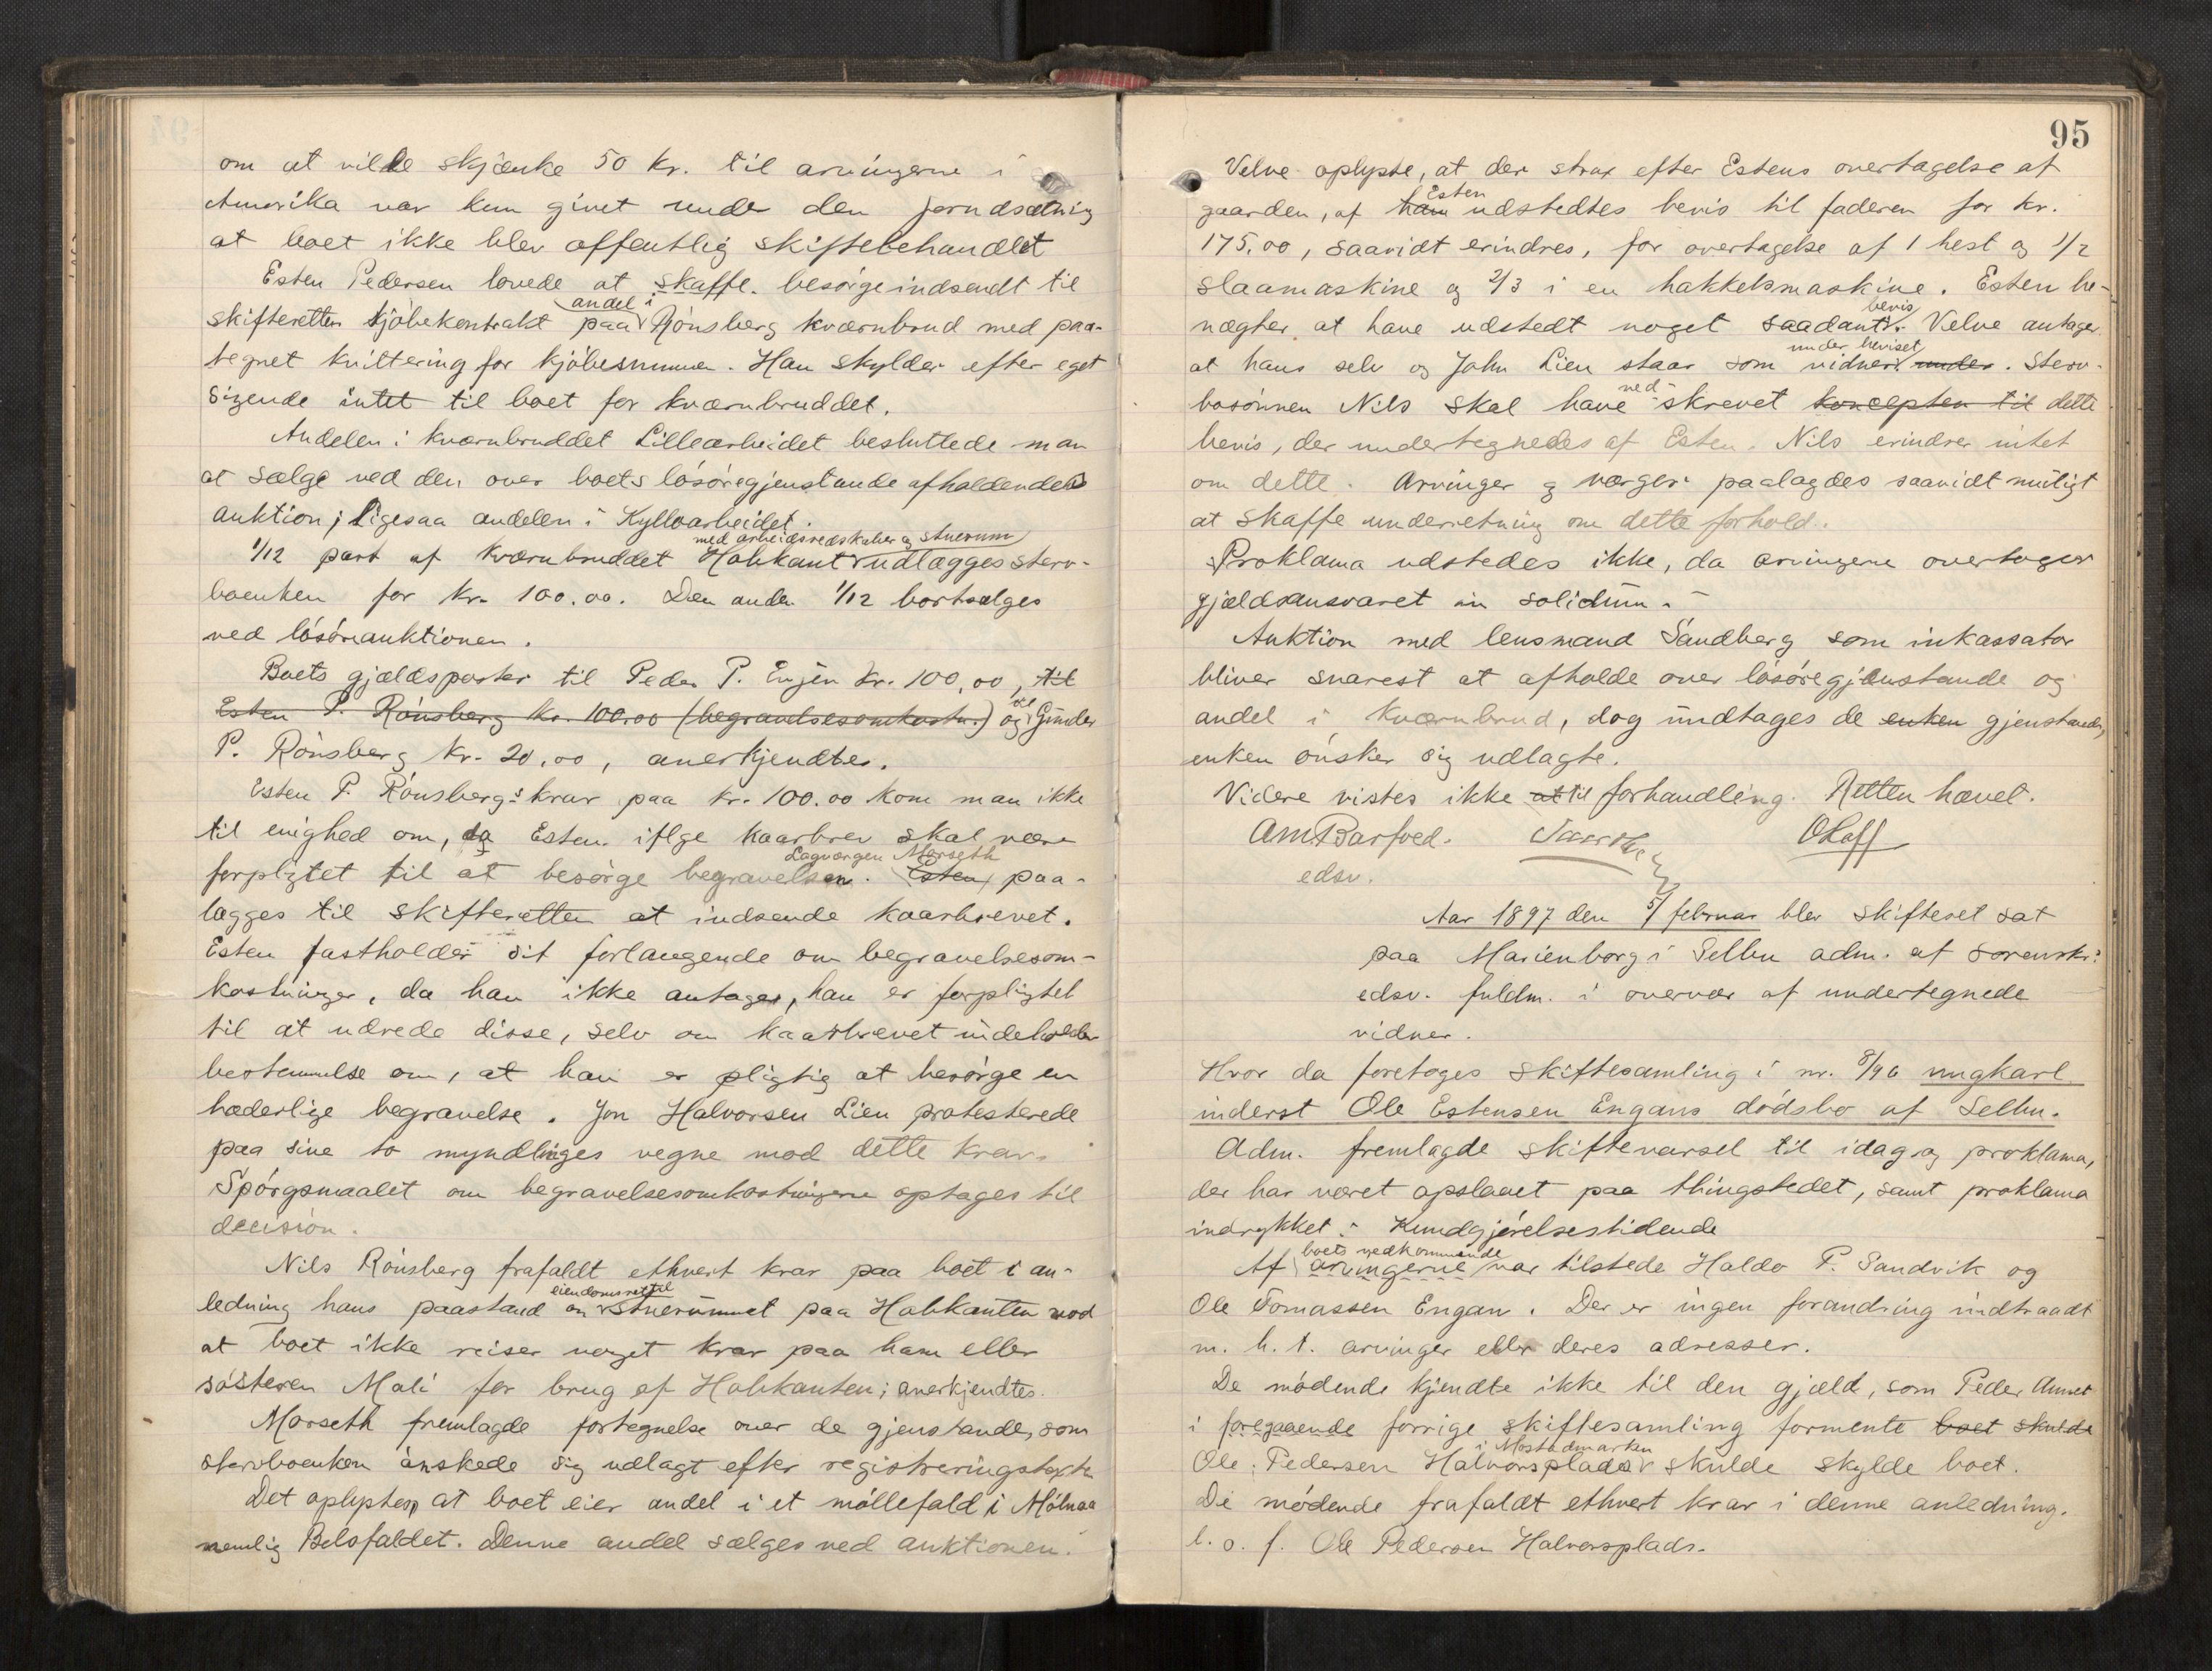 om at ville skjænke 50 kr. til arvingerne i
Amerika var kun givet under den forudsætning
at boet ikke blev offentlig skiftebehandlet
Esten Pedersen lovede at skaffe. besörge indsendt til
skifteretten kjöbekontrakt paa andel i Rönsberg kværnbrud med paa-
tegnet kvittering for kjöbesummen. Han skylder efter eget
sigende intet til boet for kværnbruddet.
Andelen i kværnbruddet Lillearbeidet besluttede man
at sælge ved den over boets lösöregjenstande afholdendes
auktion; ligesaa andelen i Kylloarbeidet.
1/12 part af kværnbruddet Hobkant med arbeidsredskaber og stuerum udlægges sterv-
boenken for kr. 100.00. Den anden 1/12 bortsælges
ved lösöreauktionen.
Boets gjældsposter til Peder P. Engen kr. 100,00, til
Esten P. Rönsberg kr. 100.00 (begravelsesomkostn.) og til Gunder
P. Rönsberg kr. 20,00, anerkjendtes.
Esten P. Rönsbergs krav paa kr. 100.00 kom man ikke
til enighed om, da Esten iflge kaarbrev skal være
forpligtet til at besörge begravelsen. Esten Lagværgen Morseth paa-
lægges til skifteretten at indsende kaarbrevet.
Esten fastholder sit forlangende om begravelsesom-
kostninger, da han ikke antager, han er forpligtet
til at udrede disse, selv om kaarbrevet indeholder
bestemmelse om, at han er pligtig at besörge en
hæderlige begravelse. Jon Halvorsen Lien protesterede
paa sine to myndlinges vegne mod dette krav.
Spörgsmaalet om begravelsesomkostningerne optages til
decision.
Nils Rönsberg frafaldt ethvert krav paa boet i an-
ledning hans paastand om eiendomsret til stuerummet paa Hobkanten mod
at boet ikke reiser noget krav paa ham eller
sösteren Mali for brug af Hobkanten; anerkjendtes.
Morseth fremlagde fortegnelse over de gjenstande, som
stervboenken önskede sig udlagt efter registreringstaxten
Det oplystes, at boet eier andel i et möllefald i Mölnaa
nemlig Belsfaldet. Denne andel sælges ved auktionen.
95
Velve oplyste, at der strax efter Estens overtagelse af
gaarden, af ham Esten udstedtes bevis til faderen for kr.
175.00, saavidt erindres, for overtagelse af 1 hest og 1/2
slaamaskine og 2/3 i en hakkelsmaskine. Esten be-
nægter at have udstedt noget saadant bevis. Velve antager
at hans selv og John Lien staar som vidner under beviset under. Sterv-
bosönnen Nils skal have ned- skrevet koncepten til dette
bevis, der undertegnedes af Esten. Nils erindrer intet
om dette. Arvinger og værger paalagdes saavidt muligt
at skaffe underretning om dette forhold.
Proklama udstedes ikke, da arvingerne overtager
gjældsansvaret in solidum.
Auktion med lensmand Sandberg som inkassator
bliver snarest at afholde over lösöregjenstande og
andel i kværnbrud, dog undtages de enken gjenstande,
enken önsker sig udlagte.
Videre vistes ikke at til forhandling. Retten hævet.
AmBarfoed. OHoff
edsv.
Aar 1897 den 5/ februar blev skifteret sat
paa Marienborg i Selbu adm. af sorenskr:
edsv. fuldm. i overvær af undertegnede
vidner.
Hvor da foretoges skiftesamling i nr. 8/96 ungkarl
inderst Ole Estensen Engans dödsbo af Selbu.
Adm. fremlagde skiftevarsel til idag og proklama,
der har været opslaaet paa thingstedet, samt proklama
indrykket i Kundgjörelsestidende
Af arvingerne boets vedkommende var tilstede Haldo P. Sandvik og
Ole Tomassen Engan. Der er ingen forandring indtraadt
m. h. t. arvinger eller deres adresser.
De mödende kjendte ikke til den gjæld, som Peder Aunet
i foregaaende forrige skiftesamling formente boet skulde
Ole Pedersen Halvorsplads i Mostadmarken skulde skylde boet.
De mödende frafaldt ethvert krav i denne anledning.
l. o. f. Ole Pedersen Halvorsplads.